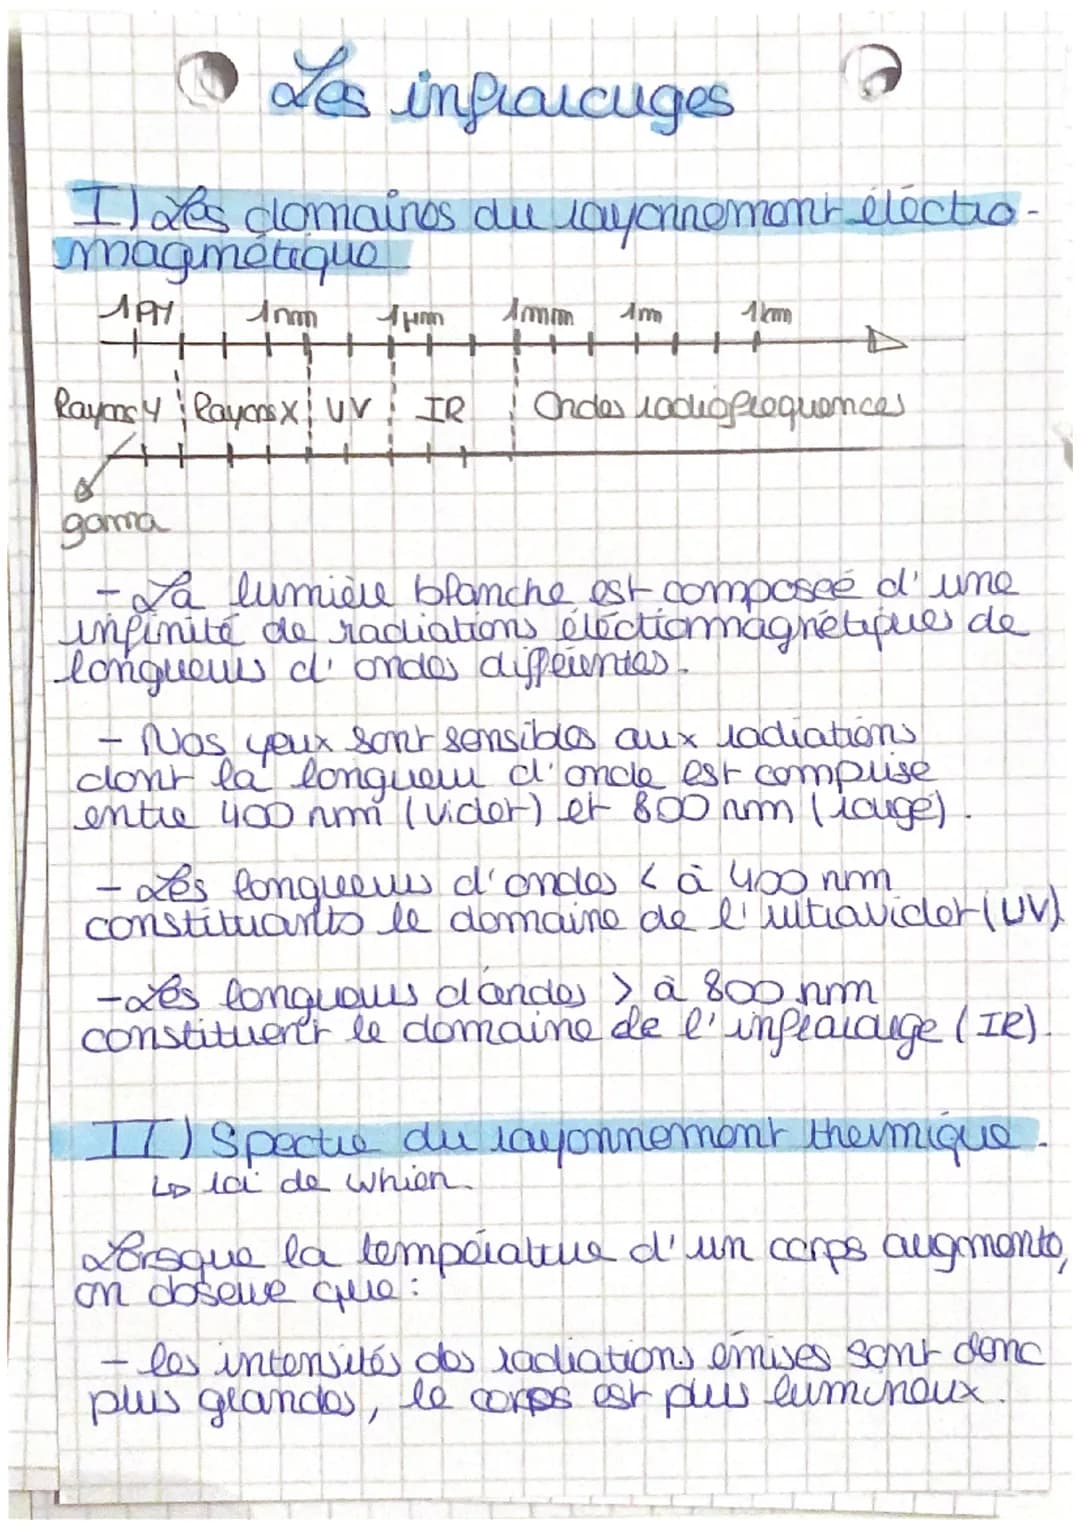 Les infrarouges
I) Les domaines du rayonnement éléctro-
magnétique
1pm 1nm 1µm 1mm 1m 1km
Rayons γ Rayons X UV IR Ondes radiofréquences
gama
- La lumière blanche est composée d'une
infinité de radiations éléctromagnétiques de
longueurs d'ondes différentes.
- Nos yeux sont sensibles aux radiations
dont la longueur d'onde est comprise
entre 400 nm (violet) et 800 nm (rouge).
- Les longueurs d'ondes < à 400 nm
constituants le domaine de l'ultraviolet (UV)
- Les longueurs d'ondes > à 800 nm
constituent le domaine de l'infrarouge (IR).
II) Spectre du rayonnement thermique.
↳ loi de Whien.
Lorsque la température d'un corps augmente,
on observe que :
- les intensités des radiations émises sont donc
plus grandes, le corps est plus lumineux.